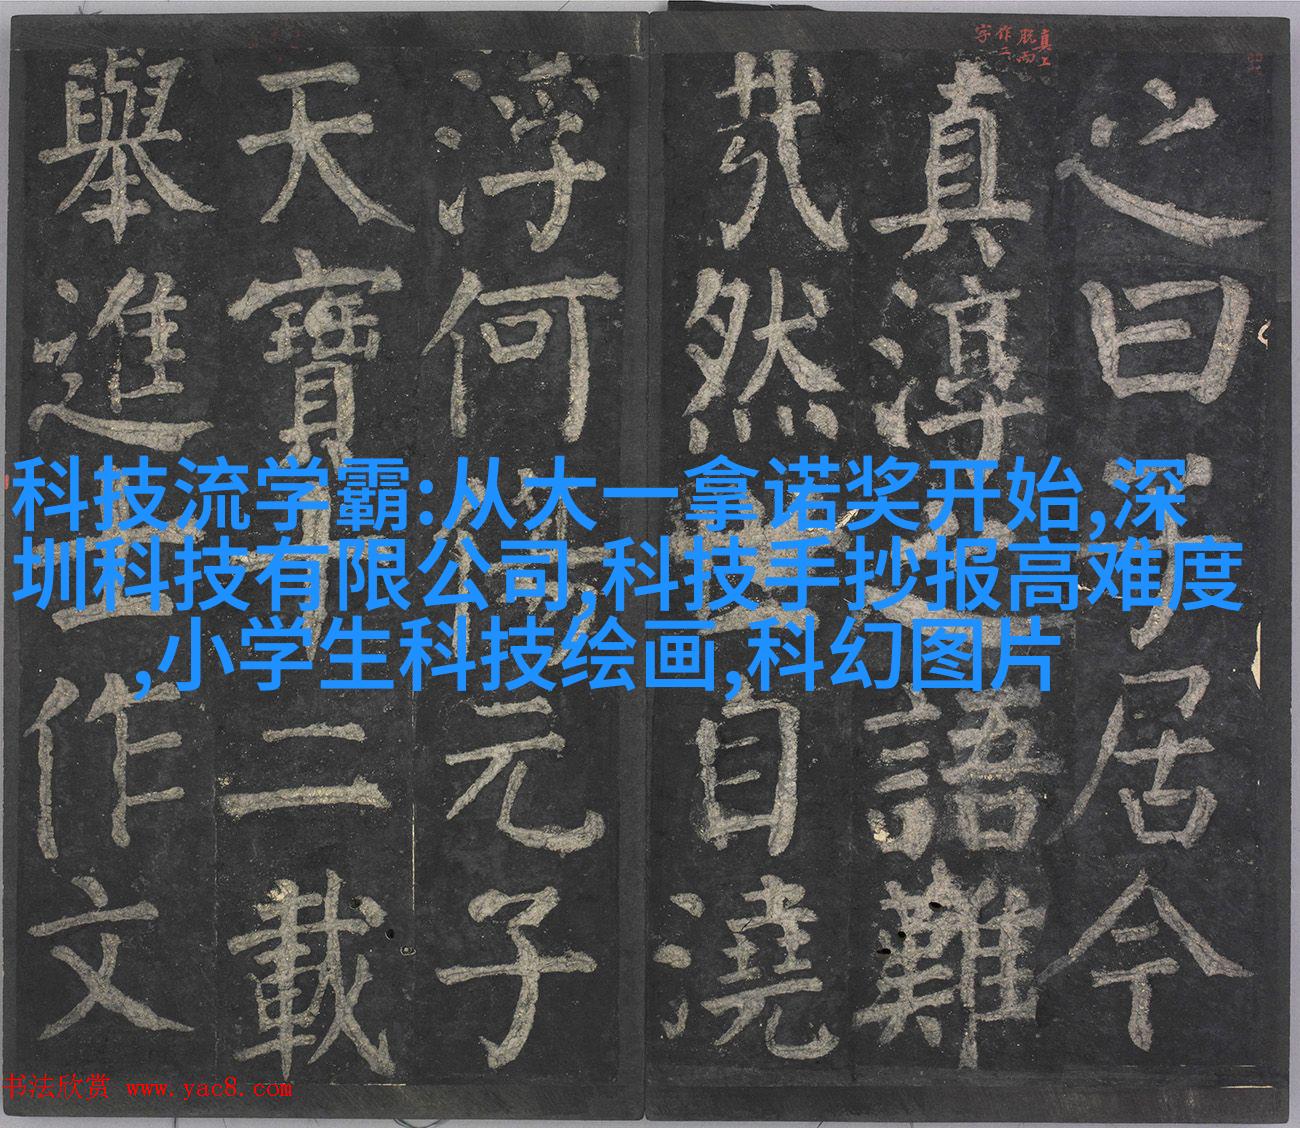 真上
脫而
作二
字
之曰子居今
真淳之語難
哉然世自澆
浮何傷元子
天寶十二載
舉進士作文
科技流学霸:从大一拿诺奖开始,深
圳科技有限公司,科技手抄报高难度
,小学生科技绘画,科幻图片
书法欣赏 www.yac8.com